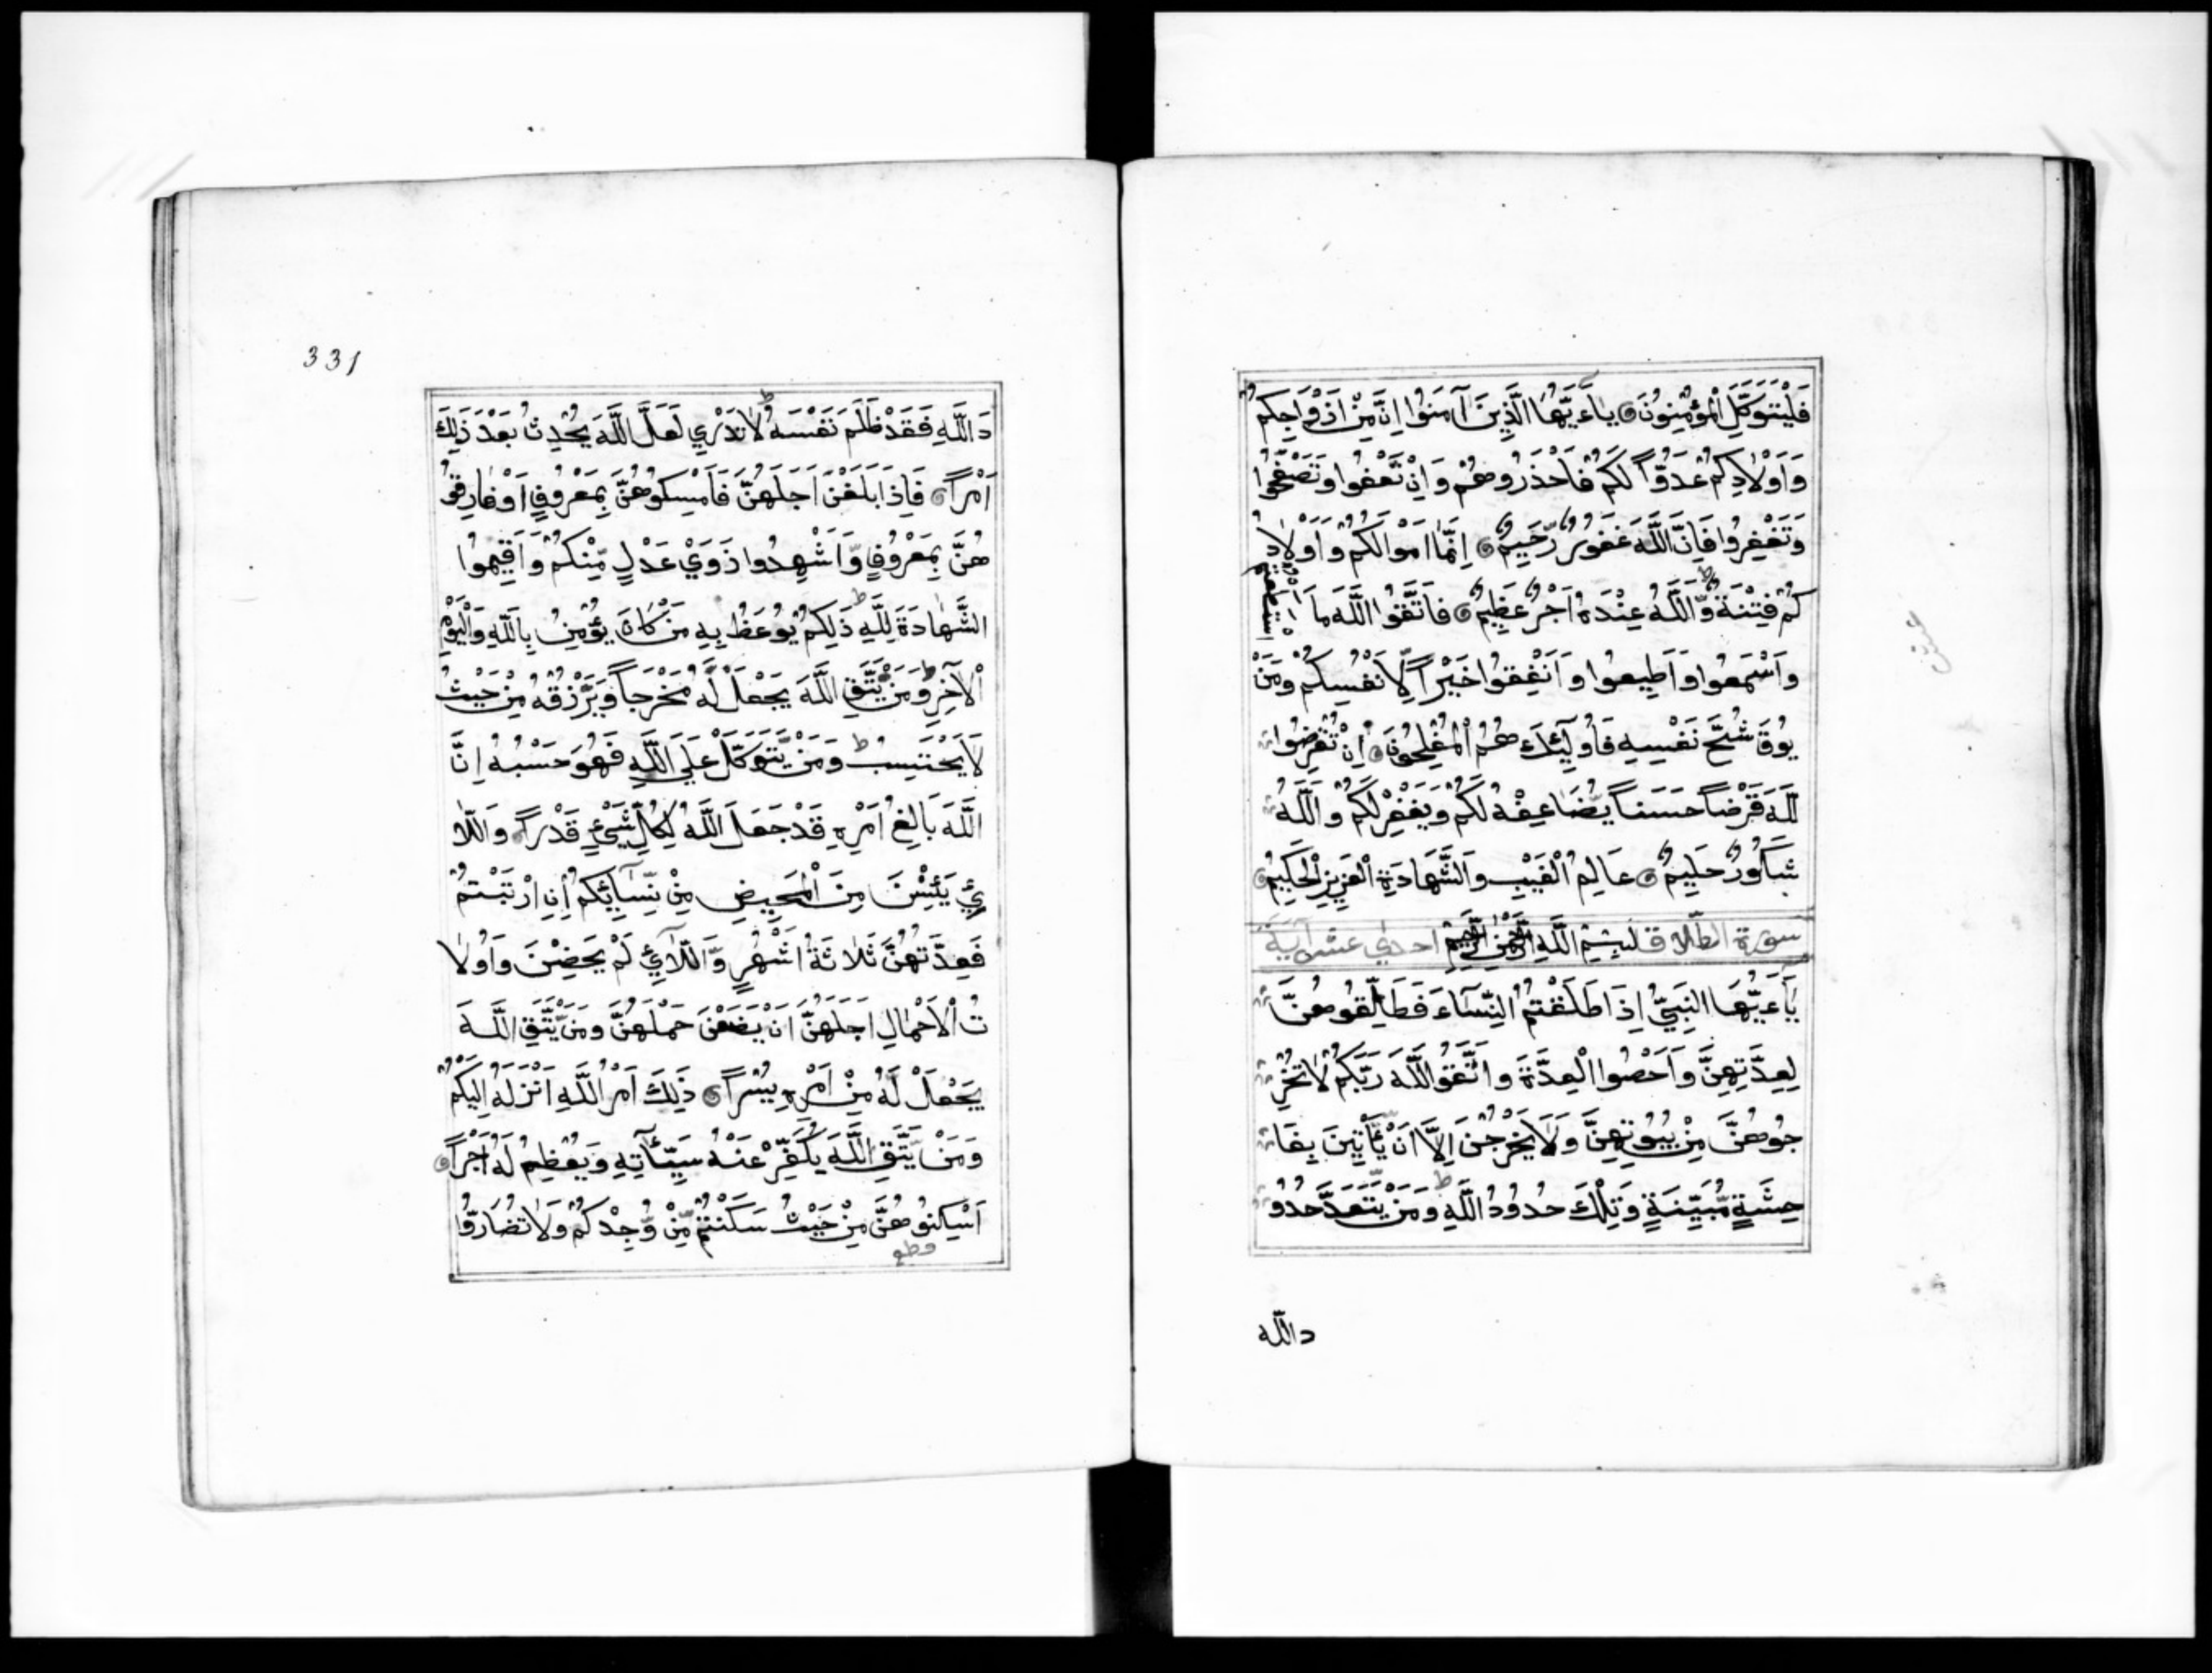 فَلْيَتَوَكَّلِ الْمُؤْمِنُونَ يٰاَءَيُّهَا الَّذِينَ آمَنُوا اِنَّ مِنْ اَزْوَاجِكُمْ
وَاَوْلَادِكُمْ عَدُوّاً لَكُمْ فَاحْذَرُوهُمْ وَاِنْ تَعْفُوا وَتَصْفَحُوا
وَتَغْفِرُوا فَاِنَّ اللَّهَ غَفُورٌ رَّحِيمٌ اِنَّمَا اَمْوَالُكُمْ وَاَوْلَادُ
كُمْ فِتْنَةٌ وَّاللَّهُ عِنْدَهُ اَجْرٌ عَظِيمٌ فَاتَّقُوا اللَّهَ مَا اسْتَطَعْتُمْ
وَاَسْمَعُوا وَاَطِيعُوا وَاَنْفِقُوا خَيْراً لِّاَنْفُسِكُمْ وَمَنْ
يُوقَ شُحَّ نَفْسِهِ فَاُولَٓئِكَ هُمُ الْمُفْلِحُونَ اِنْ تُقْرِضُوا
للَّهَ قَرْضاً حَسَناً يُّضَاعِفْهُ لَكُمْ وَيَغْفِرْ لَكُمْ وَاللَّهُ
شَكُورٌ حَلِيمٌ عَالِمُ الْغَيْبِ وَالشَّهَادَةِ الْعَزِيزِ الْحَكِيمُ
سورة الطلاق بِسْمِ اللَّهِ الرَّحْمٰنِ الرَّحِيمِ احدي عشر آية
يٰاَءَيُّهَا النَّبِيُّ اِذَا طَلَّقْتُمُ النِّسَآءَ فَطَلِّقُوهُنَّ
لِعِدَّتِهِنَّ وَاَحْصُوا الْعِدَّةَ وَاتَّقُو اللَّهَ رَبَّكُمْ لَاتُخْرِ
جُوهُنَّ مِنْ بُيُوتِهِنَّ وَلَا يَخْرُجْنَ اِلَّا اَنْ يَّأْتِينَ بِفَا
حِشَةٍ مُّبَيِّنَةٍ وَتِلْكَ حُدُودُ اللَّهِ وَمَنْ يَّتَعَدَّ حُدُو
داللّه
331
دَ اللَّهِ فَقَدْ ظَلَمَ نَفْسَهُ لَاتَدْرِي لَعَلَّ اللَّهَ يُحْدِثُ بَعْدَ ذَلِكَ
اَمْراً فَاِذَا بَلَغْنَ اَجَلَهُنَّ فَاَمْسِكُوهُنَّ بِمَعْرُوفٍ اَوْ فَارِقُو
هُنَّ بِمَعْرُوفٍ وَّاَشْهِدُوا ذَوَيْ عَدْلٍ مِّنْكُمْ وَاَقِيمُوا
الشَّهَادَةَ لِلَّهِ ذَلِكُمْ يُوعَظُ بِهِ مَنْ كَانَ يُؤْمِنُ بِاللَّهِ وَالْيَوْمِ
الْآخِرِ وَمَنْ يَّتَّقِ اللَّهَ يَجْعَلْ لَّهُ مَخْرَجاً وَيَرْزُقْهُ مِنْ حَيْثُ
لَايَحْتَسِبُ وَمَنْ يَّتَوَكَّلْ عَلَى اللَّهِ فَهُوَ حَسْبُهُ اِنَّ
اللَّهَ بَالِغُ اَمْرِهِ قَدْ جَعَلَ اللَّهُ لِكُلِّ شَيْءٍ قَدْراً وَاللَّا
ئِي يَئِسْنَ مِنَ الْمَحِيضِ مِنْ نِّسَآئِكُمْ اِنِ ارْتَبْتُمْ
فَعِدَّتُهُنَّ ثَلَاثَةُ اَشْهُرٍ وَّاللَّآئِي لَمْ يَحِضْنَ وَاُولَا
تُ الْاَحْمَالِ اَجَلُهُنَّ اَنْ يَضَعْنَ حَمْلَهُنَّ وَمَنْ يَّتَّقِ اللَّهَ
يَجْعَلْ لَّهُ مِنْ اَمْرِهِ يُسْراً ذَلِكَ اَمْرُ اللَّهِ اَنْزَلَهُ اِلَيْكُمْ
وَمَنْ يَّتَّقِ اللَّهَ يُكَفِّرْ عَنْهُ سَيِّئَاتِهِ وَيُعْظِمْ لَهُ اَجْراً
اَسْكِنُوهُنَّ مِنْ حَيْثُ سَكَنْتُمْ مِّنْ وُّجْدِكُمْ وَلَا تُضَارُّوا